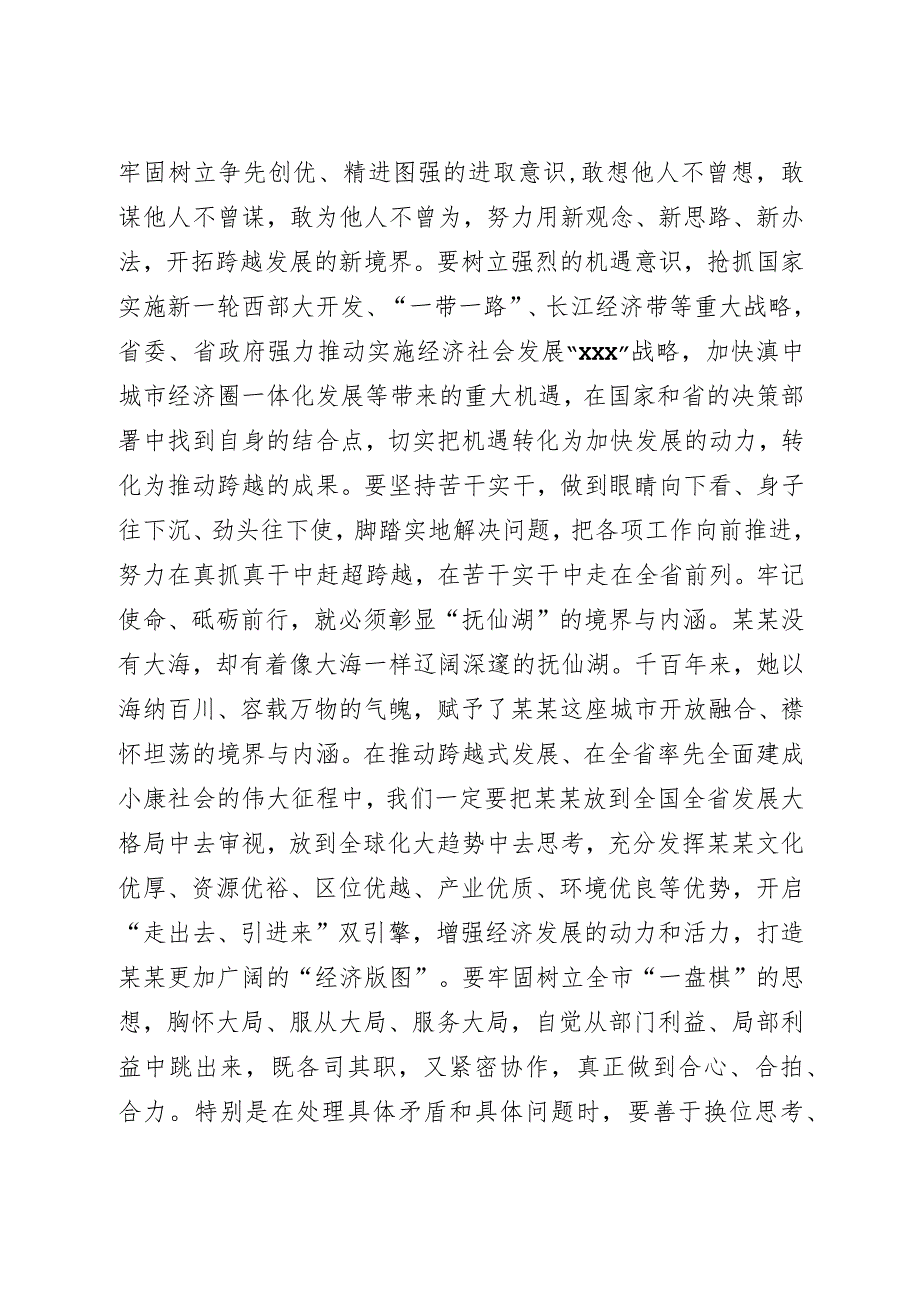 牢固树立争先创优、精进图强的进取意识,敢想他人不曾想，敢
谋他人不曾谋，敢为他人不曾为，努力用新观念、新思路、新办
法，开拓跨越发展的新境界。要树立强烈的机遇意识，抢抓国家
实施新一轮西部大开发、“一带一路”、长江经济带等重大战略，
省委、省政府强力推动实施经济社会发展“xxx”战略，加快滇中
城市经济圈一体化发展等带来的重大机遇，在国家和省的决策部
署中找到自身的结合点，切实把机遇转化为加快发展的动力，转
化为推动跨越的成果。要坚持苦干实干，做到眼睛向下看、身子
往下沉、劲头往下使，脚踏实地解决问题，把各项工作向前推进，
努力在真抓真干中赶超跨越，在苦干实干中走在全省前列。牢记
使命、砥砺前行，就必须彰显“抚仙湖”的境界与内涵。某某没
有大海，却有着像大海一样辽阔深邃的抚仙湖。千百年来，她以
海纳百川、容载万物的气魄，赋予了某某这座城市开放融合、襟
怀坦荡的境界与内涵。在推动跨越式发展、在全省率先全面建成
小康社会的伟大征程中，我们一定要把某某放到全国全省发展大
格局中去审视，放到全球化大趋势中去思考，充分发挥某某文化
优厚、资源优裕、区位优越、产业优质、环境优良等优势，开启
“走出去、引进来”双引擎，增强经济发展的动力和活力，打造
某某更加广阔的“经济版图”。要牢固树立全市“一盘棋”的思
想，胸怀大局、服从大局、服务大局，自觉从部门利益、局部利
益中跳出来，既各司其职，又紧密协作，真正做到合心、合拍、
合力。特别是在处理具体矛盾和具体问题时，要善于换位思考、